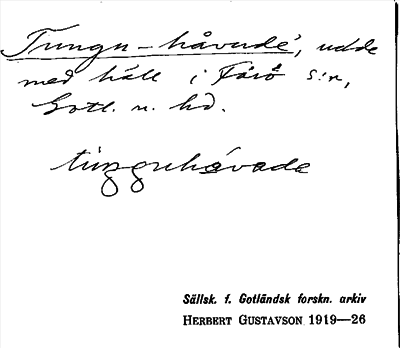 Tungu-håvude, udde
med häll i Fårö s:n,
Gotl. n. hd.
tuŋguhåvude
Sällsk. f. Gotländsk forskn. arkiv
HERBERT GUSTAVSON 1919—26